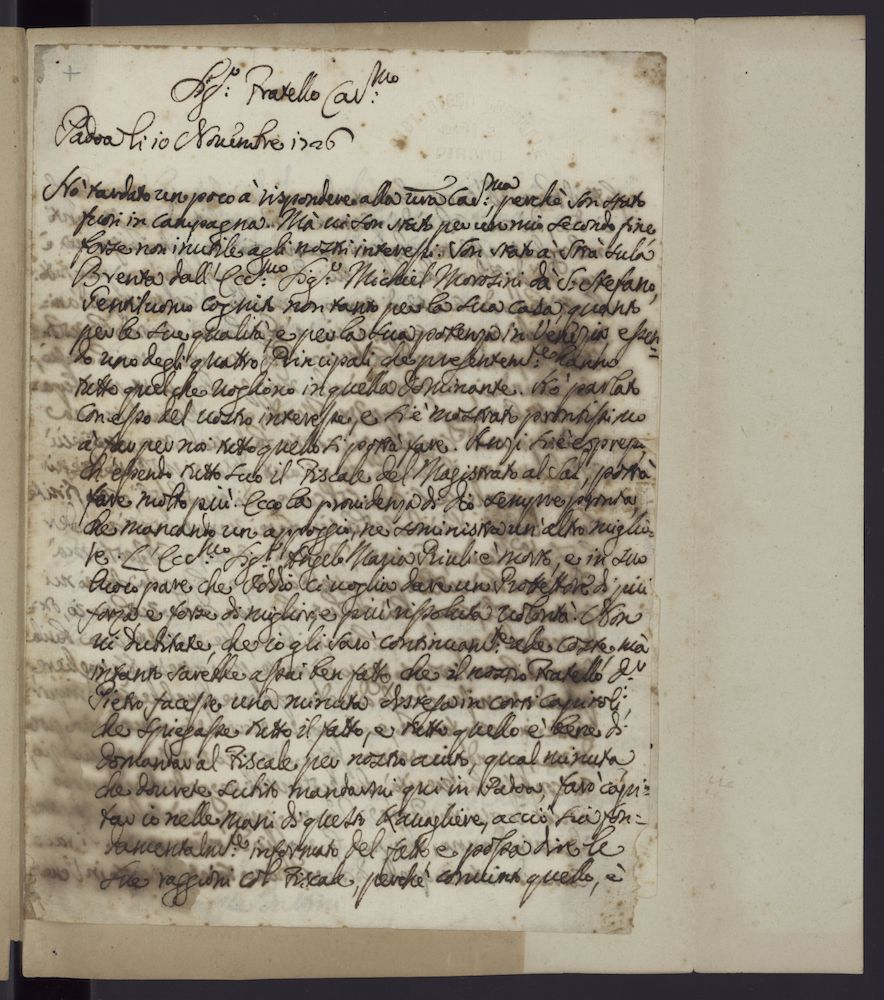 Sig.r Fratello Car.mo
Padoa li 10 Novembre 1726
Hò tardato un poco à rispondere alla vr̃a Car.ma, perchè son stato
fuori in campagna. Mà vi son stato per un mio secondo fine
forse non inutile agli nostri interessi. Son stato à Strà sulà
Brenta dall' Ecc.mo Sig.r Michiel Morosini dà S. Stefano,
Gentiluomo cognito non tanto per la sua casa, quanto
per le sue qualità, e per la sua potenza in Venezia essen=
do uno degli quattro Principali, che presentem.te hanno
tutto quel che vogliono in quella Dominante. Hò parlato
con esso del nostro interesse, e si è mostrato prontissimo
à far per noi tutto quello si potrà fare. Anzi si è espresso
ch'essendo tutto suo il Fiscale del Magistrato al Sal, potrà
fare molto più. Ecco la providenza di Dio sempre pronta,
che mancando un appoggio, ne somministra un' altro miglio=
re. L'Ecc.mo Sig.r Angelo Maria Priuli è morto, e in suo
luoco pare che Iddio ci voglia dare un Protettore di più
forza e forse di migliore e più rissoluta volontà. Non
vi dubitate, che io gli sarò continuam.te alle coste, mà
intanto sarebbe assai ben fatto che il nostro Fratello D.n
Pietro facesse una minuta distesa in corti capitoli,
che spiegasse tutto il fatto, e tutto quello è bene di
domandar al Fiscale per nostro aiuto, qual minuta
che dovrete subito mandarmi qui in Padoa, farò capi=
tar io nelle mani di questo Kavagliere, acciò sia fon=
damentalm.te informato del fatto e possa dire le
sue raggioni col Fiscale, perchè convinto quello, è